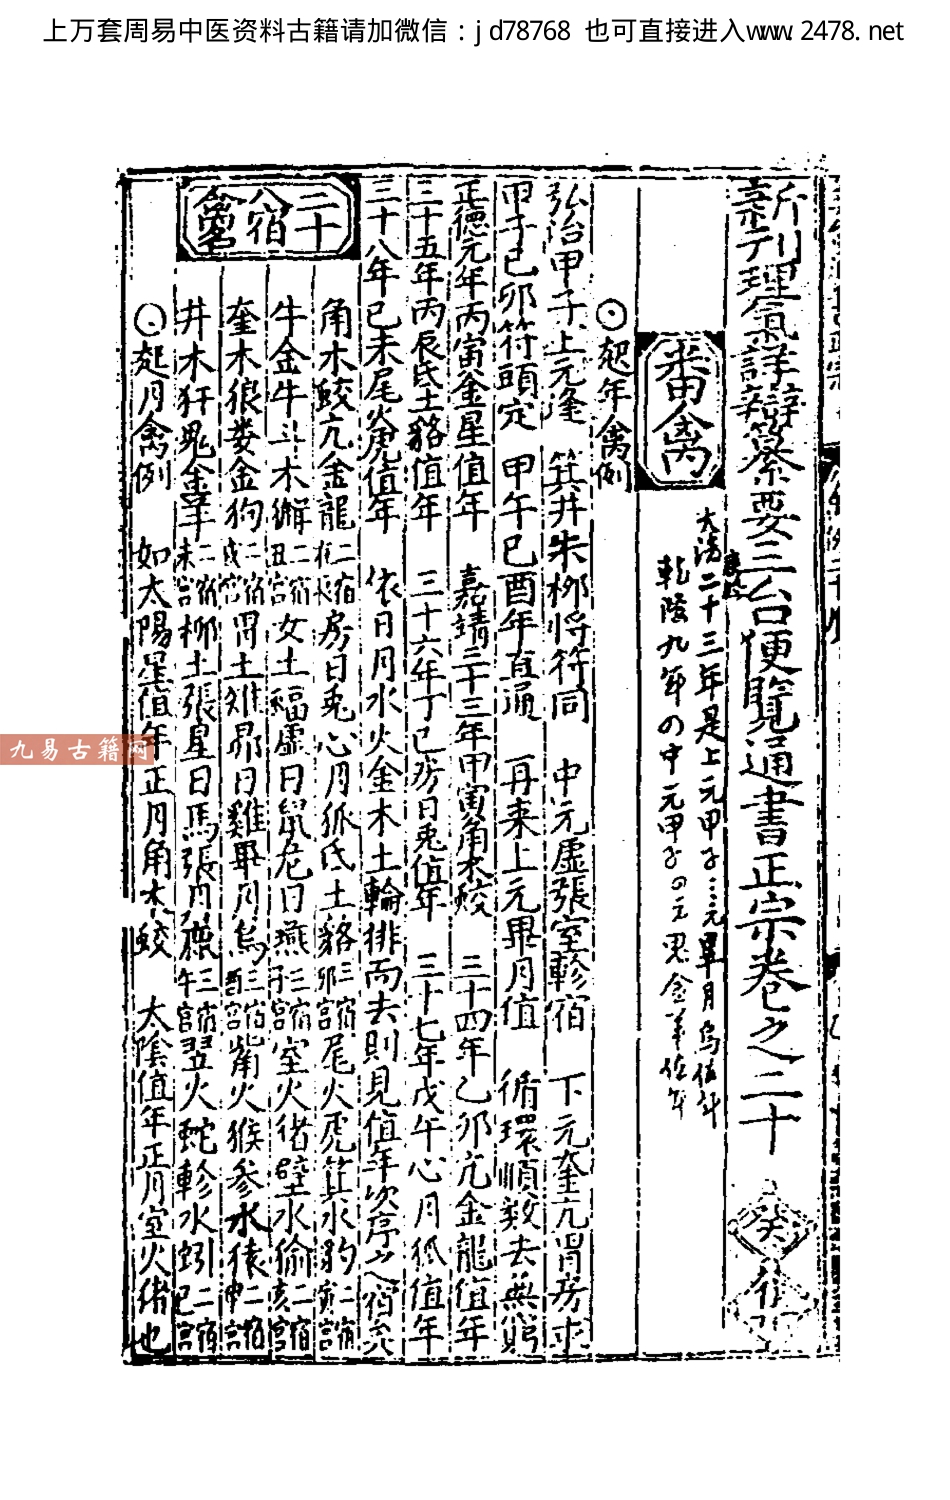 上万套周易中医资料古籍请加微信：jd78768 也可直接进入www.2478.net
新刊理氣詳辯纂要三台便覽通書正宗卷之二十
癸
番禽
大清 二十三年是上元甲子 畢月烏值年
乾隆九年の中元甲子
○起年禽例
弘治甲子上元逢 箕井朱柳將符同 中元虛張室軫宿 下元奎亢胃房求
甲子己卯符頭定 甲午己酉年直通 再来上元畢月值 循環順數去無窮
正德元年丙寅金星值年 嘉靖三十三年甲寅角木蛟 三十四年乙卯亢金龍值年
三十五年丙辰氐土貉值年 三十六年丁巳房日兎值年 三十七年戊午心月狐值年
三十八年己未尾火虎值年 依日月水火金木土輪排而去則見值年次序之宿矣
二十八宿禽名
角木蛟亢金龍二宿在辰房日兎心月狐氐土貉三宿卯宮尾火虎箕水豹二宿寅宮
牛金牛斗木獬二宿丑宮女土蝠虛日鼠危月燕三宿子宮室火猪壁水㺄二宿亥宮
奎木狼娄金狗二宿戌宮胃土雉昴日雞畢月烏三宿酉宮觜火猴参水猿二宿申宮
井木犴鬼金羊二宿未宮柳土獐星日馬張月鹿三宿午宮翌火蛇軫水蚓二宿巳宮
○起月禽例 如太陽星值年正月角木蛟 太陰值年正月室火猪也
九易古籍网